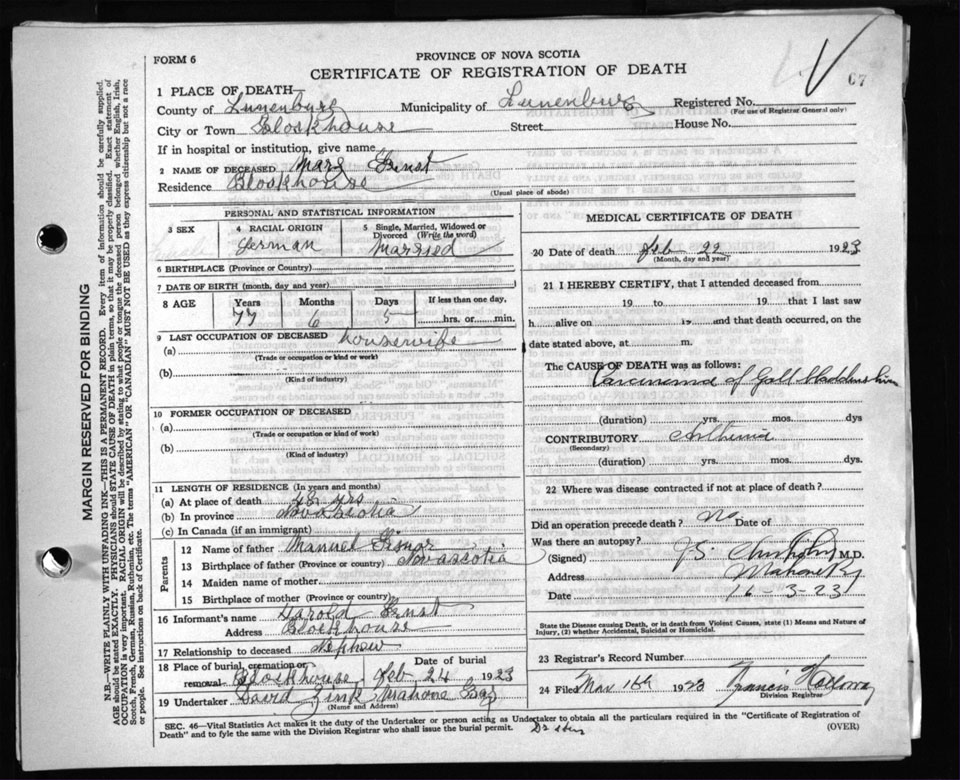 FORM 6
PROVINCE OF NOVA SCOTIA
CERTIFICATE OF REGISTRATION OF DEATH
67
1 PLACE OF DEATH
County of Lunenburg Municipality of Lunenburg Registered No.
(For use of Registrar General only)
City or Town Blockhouse Street House No.
If in hospital or institution, give name
2 NAME OF DECEASED Mary Ernst
Residence Blockhouse
(Usual place of abode)
PERSONAL AND STATISTICAL INFORMATION
3 SEX
4 RACIAL ORIGIN
German
5 Single, Married, Widowed or Divorced (Write the word)
Married
6 BIRTHPLACE (Province or Country)
7 DATE OF BIRTH (month, day and year)
8 AGE Years Months Days If less than one day,
77 6 5 hrs. or min.
9 LAST OCCUPATION OF DECEASED Housewife
(a)
(Trade or occupation or kind of work)
(b)
(Kind of industry)
10 FORMER OCCUPATION OF DECEASED
(a)
(Trade or occupation or kind of work)
(b)
(Kind of industry)
11 LENGTH OF RESIDENCE (In years and months)
(a) At place of death 48 yrs
(b) In province Nova Scotia
(c) In Canada (if an immigrant)
Parents
12 Name of father Manuel
13 Birthplace of father (Province or country) Nova Scotia
14 Maiden name of mother
15 Birthplace of mother (Province or country)
16 Informant's name Harold Ernst
Address Blockhouse
17 Relationship to deceased Nephew
18 Place of burial, cremation or removal Blockhouse Date of burial Feb 24 1923
19 Undertaker David Zink Mahone Bay
(Name and Address)
MEDICAL CERTIFICATE OF DEATH
20 Date of death Feb 22 1923
(Month, day and year)
21 I HEREBY CERTIFY, that I attended deceased from
19 to 19 that I last saw
h alive on 19 and that death occurred, on the
date stated above, at m.
The CAUSE OF DEATH was as follows:
Carcinoma of Gall bladder & liver
(duration) yrs. mos. dys
CONTRIBUTORY Asthenia
(Secondary)
(duration) yrs. mos. dys.
22 Where was disease contracted if not at place of death?
Did an operation precede death? No Date of
Was there an autopsy?
(Signed) J.S. M.D.
Address Mahone Bay
Date 16-3-23
State the Disease causing Death, or in death from Violent Causes, state (1) Means and Nature of
Injury, (2) whether Accidental, Suicidal or Homicidal.
23 Registrar's Record Number
24 Filed Mar 16th 1923 Francis
Division Registrar
SEC. 46—Vital Statistics Act makes it the duty of the Undertaker or person acting as Undertaker to obtain all the particulars required in the "Certificate of Registration of
Death" and to fyle the same with the Division Registrar who shall issue the burial permit.
(OVER)
MARGIN RESERVED FOR BINDING
N.B.—WRITE PLAINLY WITH UNFADING INK—THIS IS A PERMANENT RECORD. Every item of information should be carefully supplied.
AGE should be stated EXACTLY. PHYSICIANS should STATE CAUSE OF DEATH in plain terms, so that it may be properly classified. Exact statement of
OCCUPATION is very important. RACIAL ORIGIN will be described by stating to what people or tongue the deceased person belonged whether English, Irish,
Scotch, French, German, Russian, Ruthenian, etc. The terms "AMERICAN" OR "CANADIAN" MUST NOT BE USED as they express citizenship but not a race
or people. See instructions on back of Certificate.